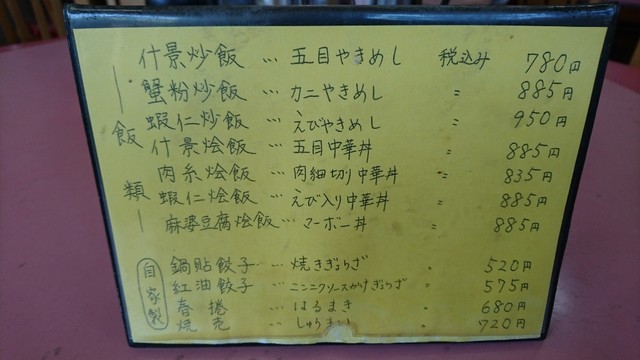 飯類
什景炒飯 … 五目やきめし 税込み 780円
蟹粉炒飯 … カニやきめし 〃 885円
蝦仁炒飯 … えびやきめし 〃 950円
什景烩飯 … 五目中華丼 〃 885円
肉糸烩飯 … 肉細切り中華丼 〃 835円
蝦仁烩飯 … えび入り中華丼 〃 885円
麻婆豆腐烩飯 … マーボー丼 〃 885円
自家製
鍋貼餃子 … 焼きぎょうざ 〃 520円
紅油餃子 … ニンニクソースかけぎょうざ 〃 575円
春捲 … はるまき 〃 680円
焼売 … しゅうまい 〃 720円